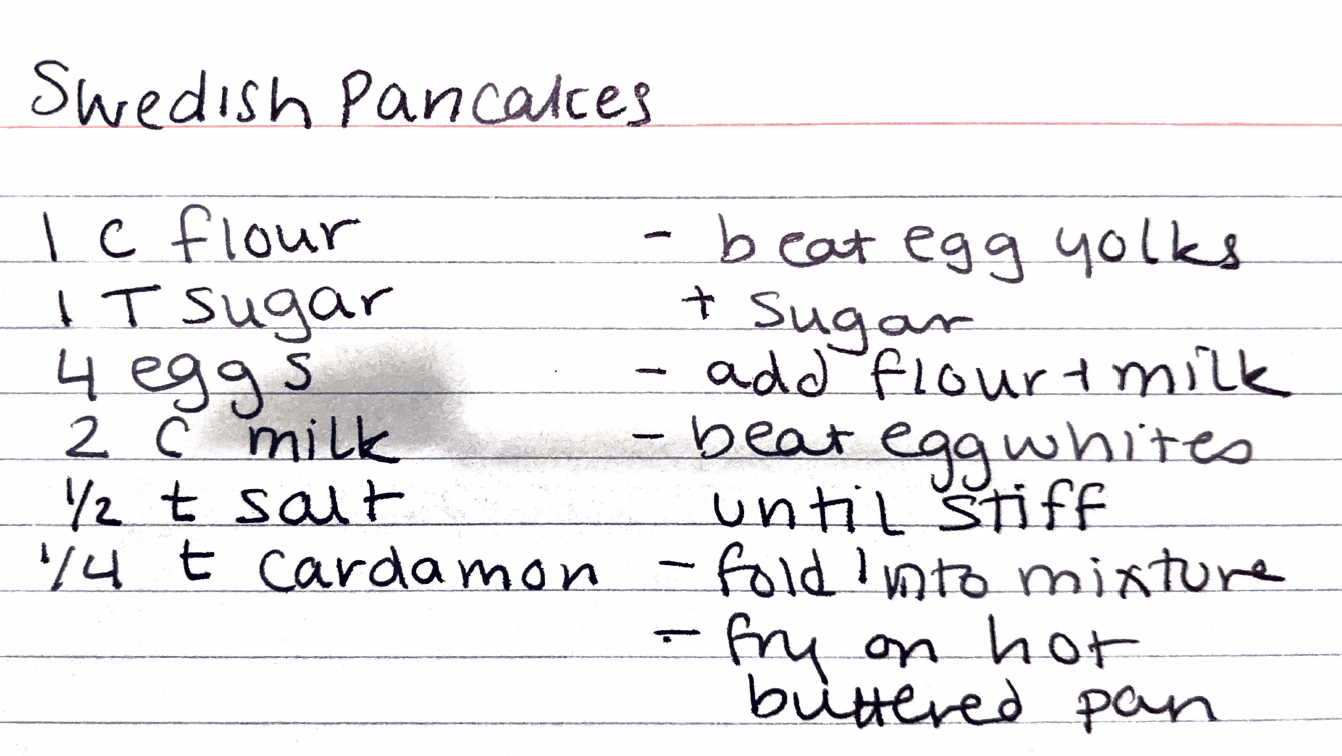 Swedish Pancakes
1 C flour
1 T sugar
4 eggs
2 C milk
1/2 t salt
1/4 t cardamon
- beat egg yolks
+ sugar
- add flour + milk
- beat egg whites
until stiff
- fold into mixture
- fry on hot
buttered pan